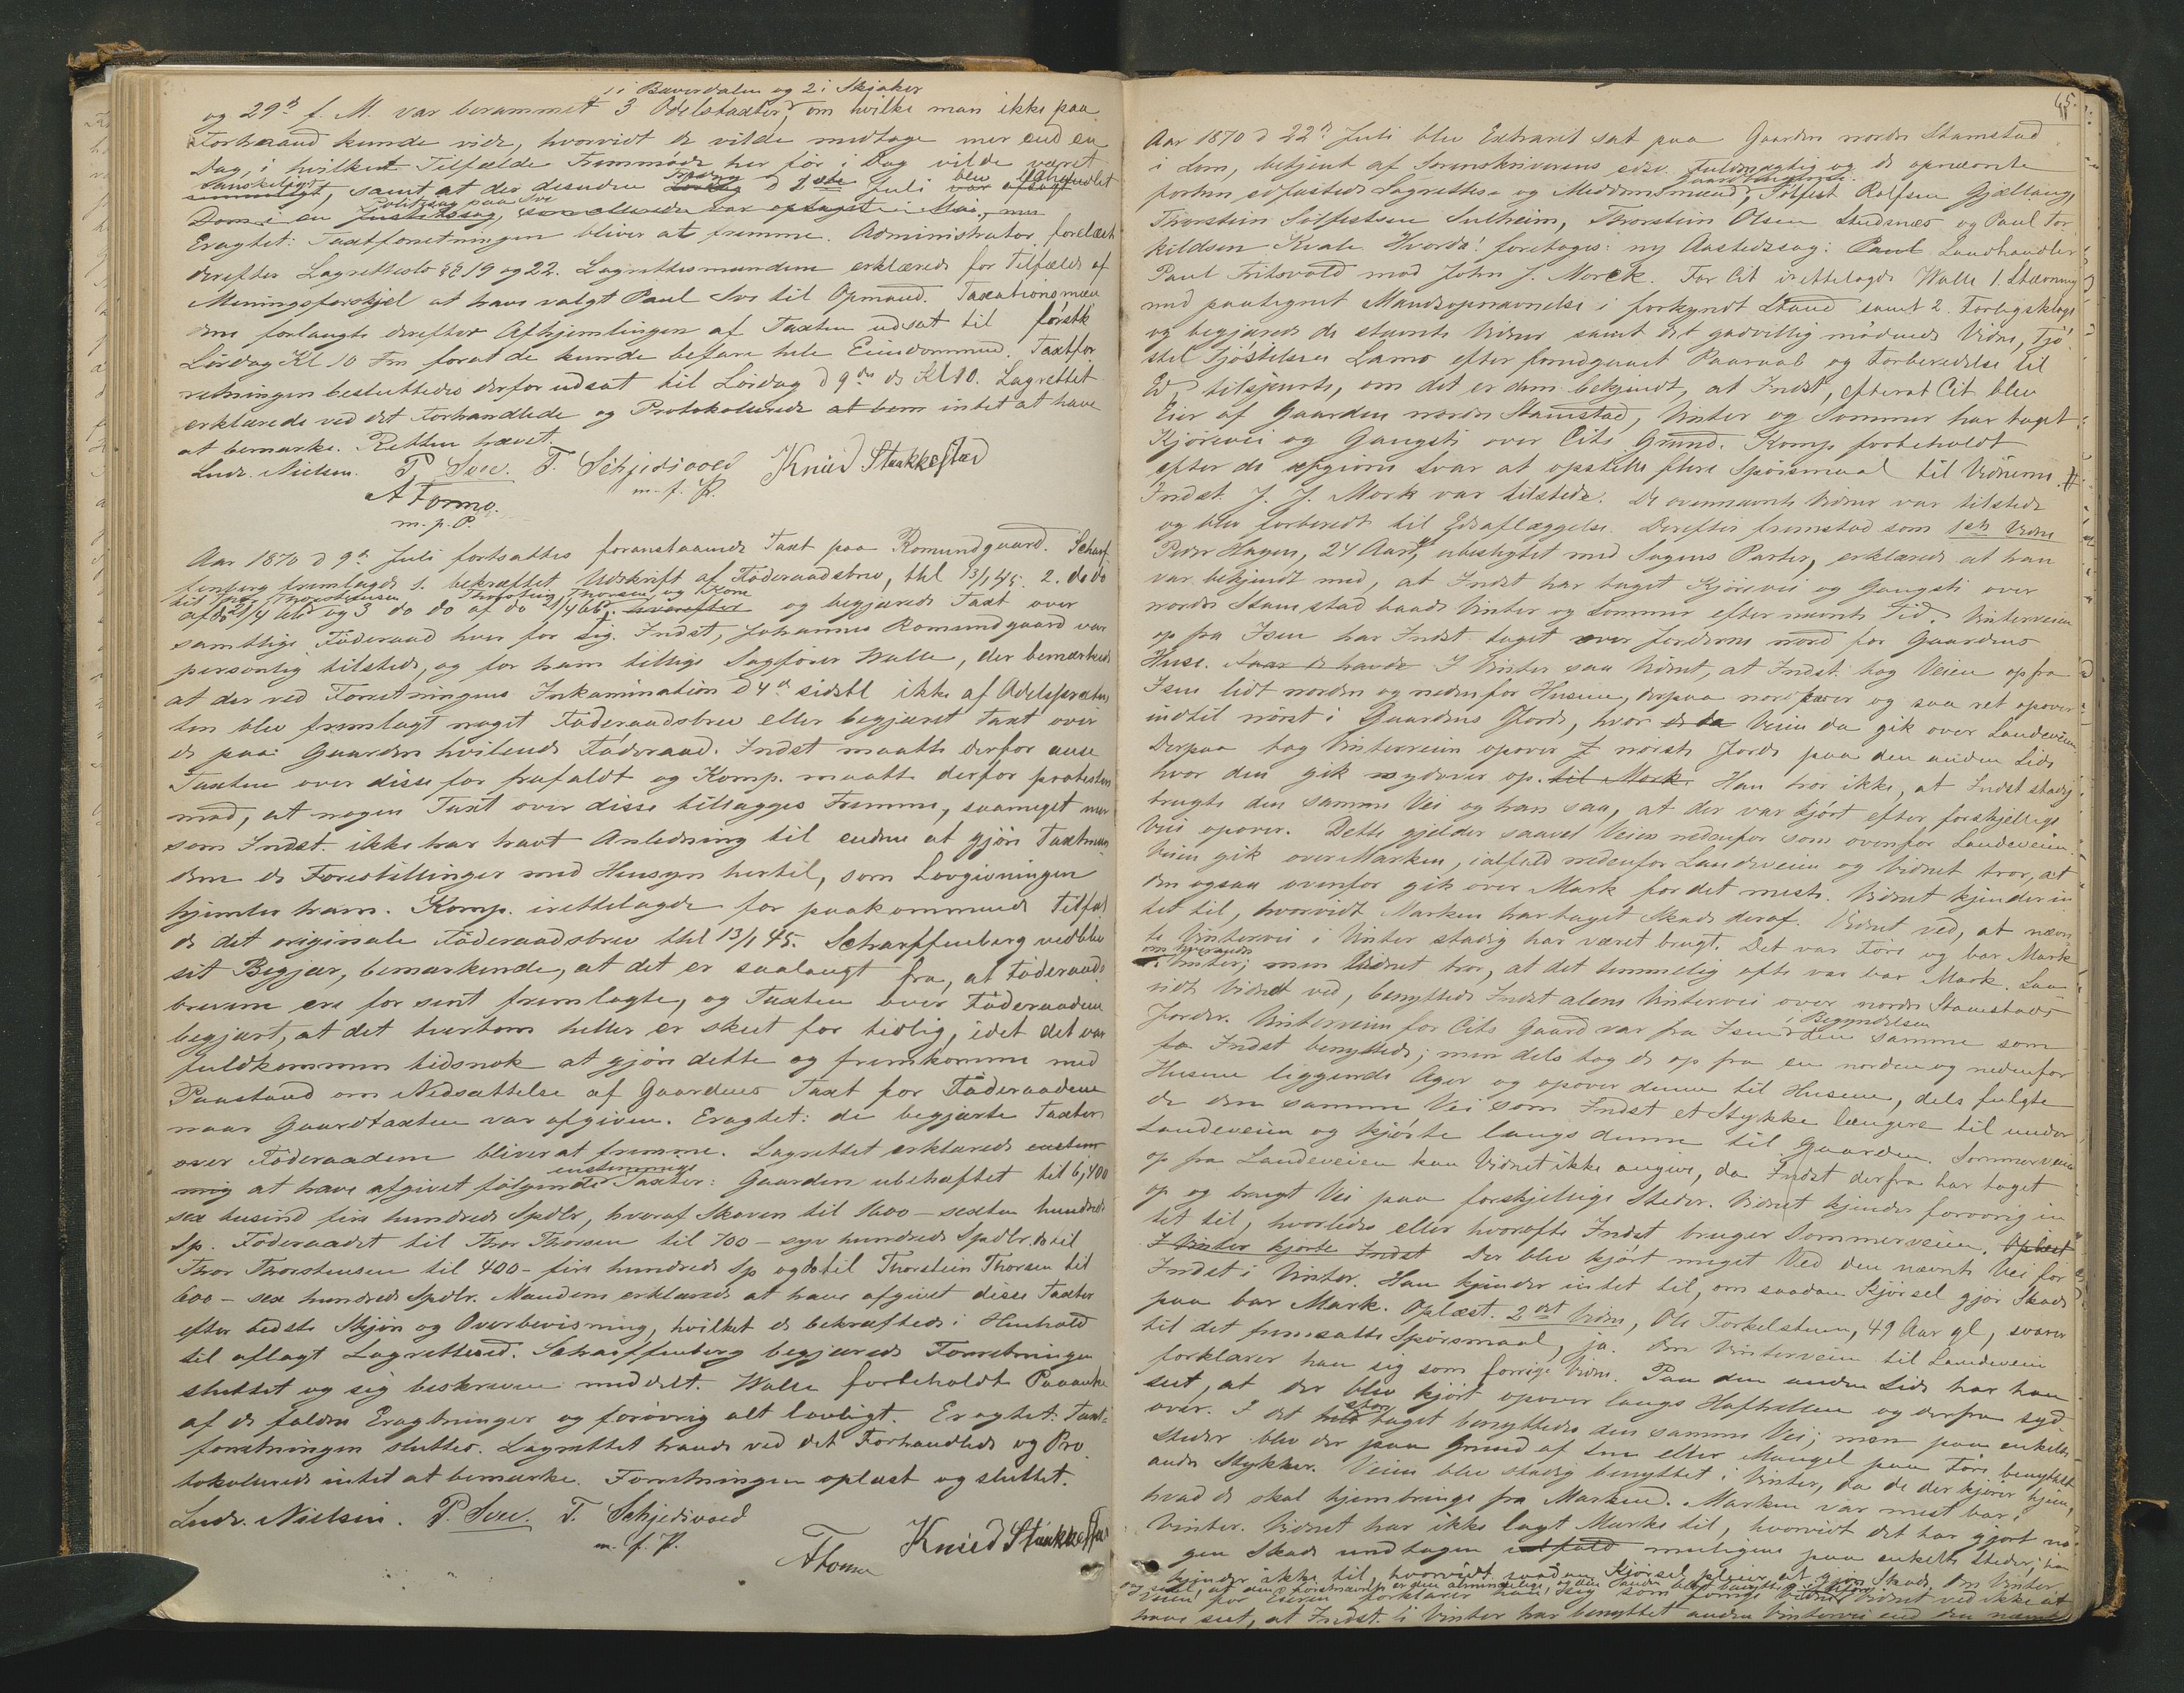 1 i Bæverdalen og 2 i Skjaker
og 29de f. M. var berammet 3 Odelstaxter, om hvilke man ikke paa
Forhaand kunde vide, hvorvidt de vilde medtage mer end en
Dag, i hvilket Tilfælde Fremmøde her før i Dag vilde været
vanskeligt, samt at der desuden Fredag d 1ste Juli blev behandlet
Politisag paa Sve
Dom i en Justitssag, som allerede var optaget i Mai, men
Eragtet: Taxtforretningen bliver at fremme. Administrator forelæste
derefter Lagretteslov §§ 19 og 22. Lagrettesmændene erklærede for Tilfælde af
Meningsforskjel at have valgt Paul Sve til Opmand. Taxationsmæn
dene forlangte derefter Afhjemlingen af Taxten udsat til førstk
Lørdag Kl 10 Fm forat de kunde befare hele Eiendommen. Taxtfor
retningen besluttedes derfor udsat til Lørdag d 9de ds Kl 10. Lagrettet
erklærede ved det Forhandlede og Protokollerede at bem intet at have
at bemærke. Retten hævet.
Ludv. Nielsen. P Sve. T. Schjedsvoed Knud Stakkestad
m. f. P.
A Formo.
m. p. P.
Aar 1870 d 9de Juli fortsattes foranstaaende Taxt paa Romundgaard. Scharf
fenberg fremlagde 1. bekræftet Udskrift af Føderaadsbrev, thl 13/1 45. 2. do do
til Thor Thorstensen Thorstein Thorsen og Kone
af do 21/4 66 og 3 do do af do 21/4 66, hvorefter og begjærede Taxt over
samtlige Føderaad hver for sig. Indst, Johannes Romundgaard var
personlig tilstede, og for ham tillige Sagfører Walle, der bemærkede
at der ved Forretningens Inkamination d 4de sidstl ikke af Odelspræten
ten blev fremlagt noget Føderaadsbrev eller begjæret Taxt over
de paa Gaarden hvilende Føderaad. Indst maatte derfor anse
Taxten over disse for frafaldt og Komp. maatte derfor protestere
mod, at nogen Taxt over disse tillægges Fremme, saameget mer
som Indst. ikke har havt Anledning til endnu at gjøre Taxtmæn
dene de Forestillinger med Hensyn hertil, som Lovgivningen
hjemler ham. Komp. irettelagde for paakommende Tilfæl
de det originale Føderaadsbrev thl 13/1 45. Scharffenberg vedblev
sit Begjær, bemærkende, at det er saalangt fra, at Føderaads
brevene ere for sent fremlagte, og Taxten over Føderaadene
begjært, at det tvertom heller er skeet for tidlig, idet det var
fuldkommen tidsnok at gjøre dette og fremkomme med
Paastand om Nedsættelse af Gaardens Taxt for Føderaadene
naar Gaardtaxten var afgiven. Eragtet: de begjærte Taxter
over Føderaadene bliver at fremme. Lagrettet erklærede enstem
enstemmige
mig at have afgivet følgende Taxter: Gaarden ubehæftet til 6,400
sex tusind fire hundrede Spdlr, hvoraf Skoven til 1600 – sexten hundrede
Sp. Føderaadet til Thor Thorsen til 700 – syv hundrede Spdlr. do til
Thor Thorstensen til 400 – fire hundrede Sp og do til Thorstein Thorsen til
600 – sex hundrede Spdlr. Mændene erklærede at have afgivet disse Taxter
efter bedste Skjøn og Overbevisning, hvilket de bekræftede i Henhold
til aflagt Lagretteseed. Scharffenberg begjærede Forretningen
sluttet og sig beskreven meddelt. Walle forbeholdt Paaanke
af de faldne Eragtninger og forøvrig alt lovligt. Eragtet: Taxt
forretningen sluttes. Lagrettet havde ved det Forhandlede og Pro
tokollerede intet at bemærke. Forretningen oplæst og sluttet.
Ludv. Nielsen. P. Sve. T. Schjedsvoed
m. f. P. Knud Stakkestad
A Formo
45.
Aar 1870 d 22de Juli blev Extraret sat paa Gaarden nordre Stamstad
i Lom, betjent af Sorenskriverens edsv. Fuldmægtig og de opnævnte
forhen edfæstede Lagrettes- og Meddomsmænd, Tolfest Rolfsen Gjællaug,
Thorstein Tolfestsen Sulheim, Thorstein Olsen Studsnæs og Paul Tor
kildsen Kvale. Hvorda! foretoges: ny Aastedssag: Paul Landhandler
Paul Fritsvold mod John J. Morck. For Cit irettelagde Walle 1. Stævning
med paategnet Mandsopnævnelse i forkyndt Stand samt 2. Forligsklage
og begjærede de stævnte Vidner samt det godvillig mødende Vidne, Tjø
stel Tjøstelsen Lamo efter foregaaet Paaraab og Forberedelse til
Ed, tilspurgte, om det er dem bekjendt, at Indst, efterat Cit blev
Eier af Gaarden nordre Stamstad, Vinter og Sommer har taget
Kjørevei og Gangsti over Cits Grund. Komp forbeholdt
efter de afgivne Svar at opstille flere Spørsmaal til Vidnerne.
Indst. J. J. Mork var tilstede. De ovennævnte Vidner var tilstede
og blev forberedt til Edsaflæggelse. Derefter fremstod som 1ste Vidne
Peder Hagen, 24 Aar, ubeslægtet med Sagens Parter, erklærede at han
var bekjendt med, at Indst har taget Kjørevei og Gangsti over
nordre Stamstad baade Vinter og Sommer efter nævnte Tid. Vinterveien
op fra Isen har Indst taget over Jorderne nord for Gaardens
Huse. Naar de havde I Vinter saa Vidnet, at Indst. tog Veien op fra
Isen lidt norden og nedenfor Husene, derpaa nordover og saa ret opover
indtil nørst i Gaardens Jorde, hvor de da Veien da gik over Landeveien
Derpaa tog Vinterveien opover nørste Jorde paa den anden Side
hvor den gik sydover op. til Mork. Han tror ikke, at Indst stadig
brugte den samme Vei og han saa, at der var kjørt efter forskjellige
Veie opover. Dette gjelder saavel Veien nedenfor som ovenfor Landeveien.
Veien gik over Marken, ialfald nedenfor Landeveien og Vidnet tror, at
den ogsaa ovenfor gik over Mark for det meste. Vidnet kjender in
tet til, hvorvidt Marken har taget Skade deraf. Vidnet ved, at nævn
te Vintervei i Vinter stadig har været brugt. Det var Føre og bar Mark
om hverandre
i Vinter; men Vidnet tror, at det temmelig ofte var bar Mark. Saa
vidt Vidnet ved, benyttede Indst alene Vintervei over nordre Stamstads
i Begyndelsen
Jorder. Vinterveien for Cits Gaard var fra Isen den samme som
fra Indst benyttede; men dels tog de op fra en norden og nedenfor
Husene liggende Ager og opover denne til Husene, dels fulgte
de den samme Vei som Indst et Stykke længere til under
Landeveien og kjørte langs denne til Gaarden. Sommerveien
op fra Landeveien kan Vidnet ikke angive, da Indst derfra har taget
op og brugt Vei paa forskjellige Steder. Vidnet kjender forøvrig in
tet til, hvorledes eller hvorofte Indst bruger Sommerveien. Oplæst
I Vinter kjørte Indst Der blev kjørt meget Ved den nævnte Vei for
Indst i Vinter. Han kjender intet til, om saadan Kjørsel gjør Skade
paa bar Mark. Oplæst. 2det Vidne, Ole Torkelsteen, 49 Aar gl, svarer
til det fremsatte Spørsmaal, ja. Om Vinterveien til Landeveien
forklarer han sig som forrige Vidne. Paa den anden Side har han
seet, at der blev kjørt opover langs Hafthellen og derfra syd
over. I det store taget benyttedes den samme Vei; men paa enkelte
Steder blev der paa Grund af Sne eller Mangel paa Føre benyttet
andre Stykker. Veien blev stadig benyttet i Vinter, da de der kjører hjem,
hvad de skal hjembringe fra Marken. Marken var mest bar i
Vinter. Vidnet har ikke lagt Mærke til, hvorvidt det har gjort no
gen Skade undtagen ialfald muligens paa enkelte Steder; han
kjender ikke til, hvorvidt saadan Kjørsel pleier at gjøre Skade. Om Vinter
veien for Eieren forklarer han sig som forrige Vidne. Vidnet ved ikke at
have seet, at Indst. i Vinter har benyttet anden Vintervei end den nævnte